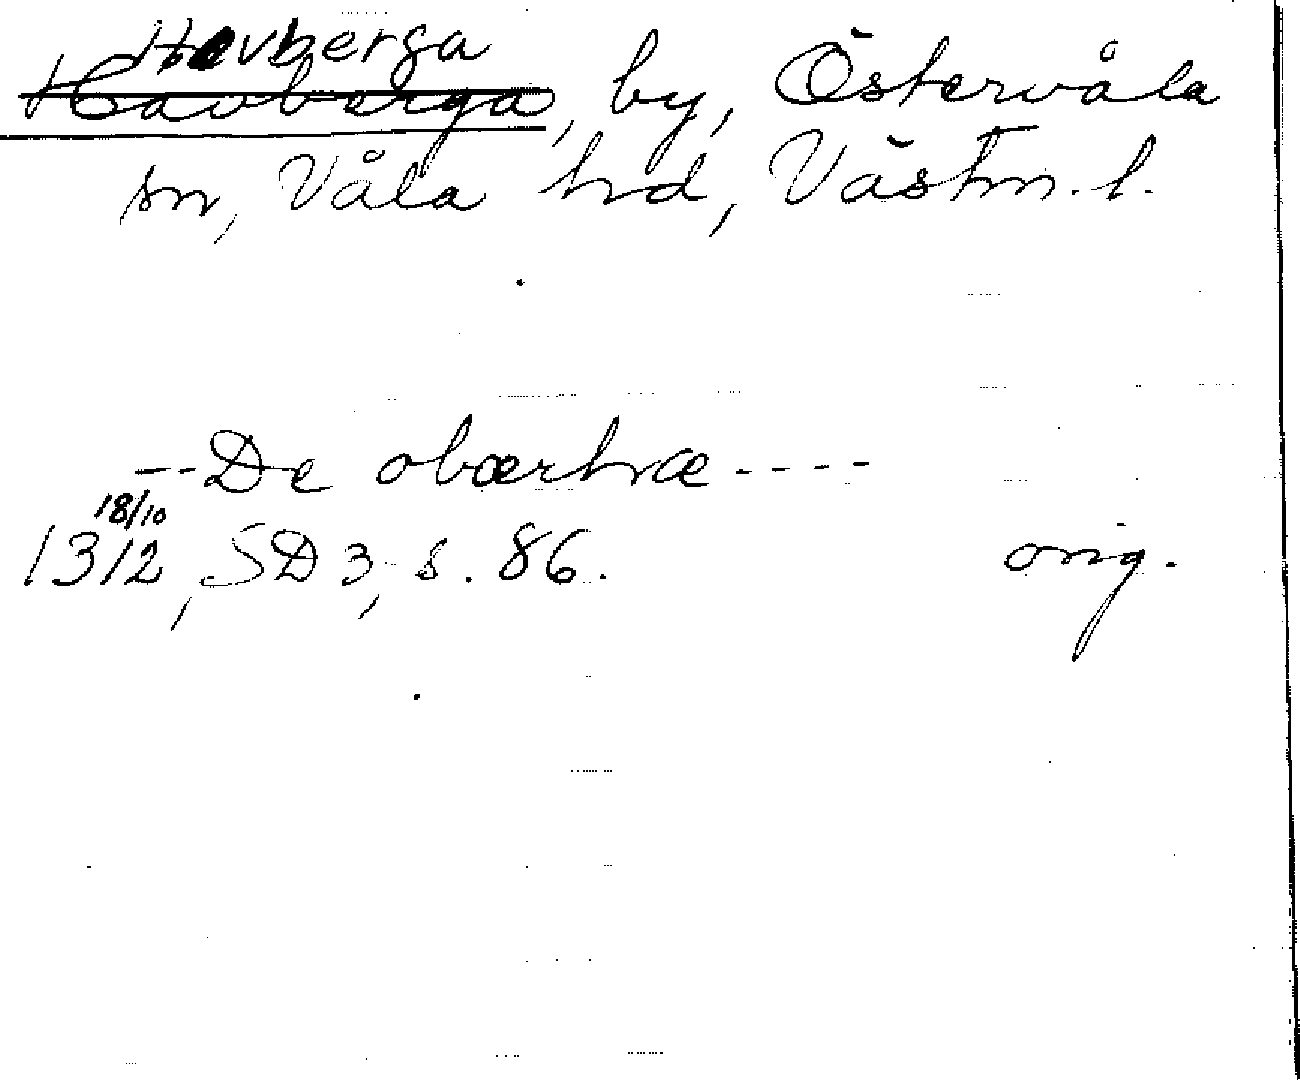 Hovberga
Havberga, by, Östervåla
sn, Våla hd, Västm. l.
-- De obærhræ ----
18/10
1312, SD 3, s. 86. orig.